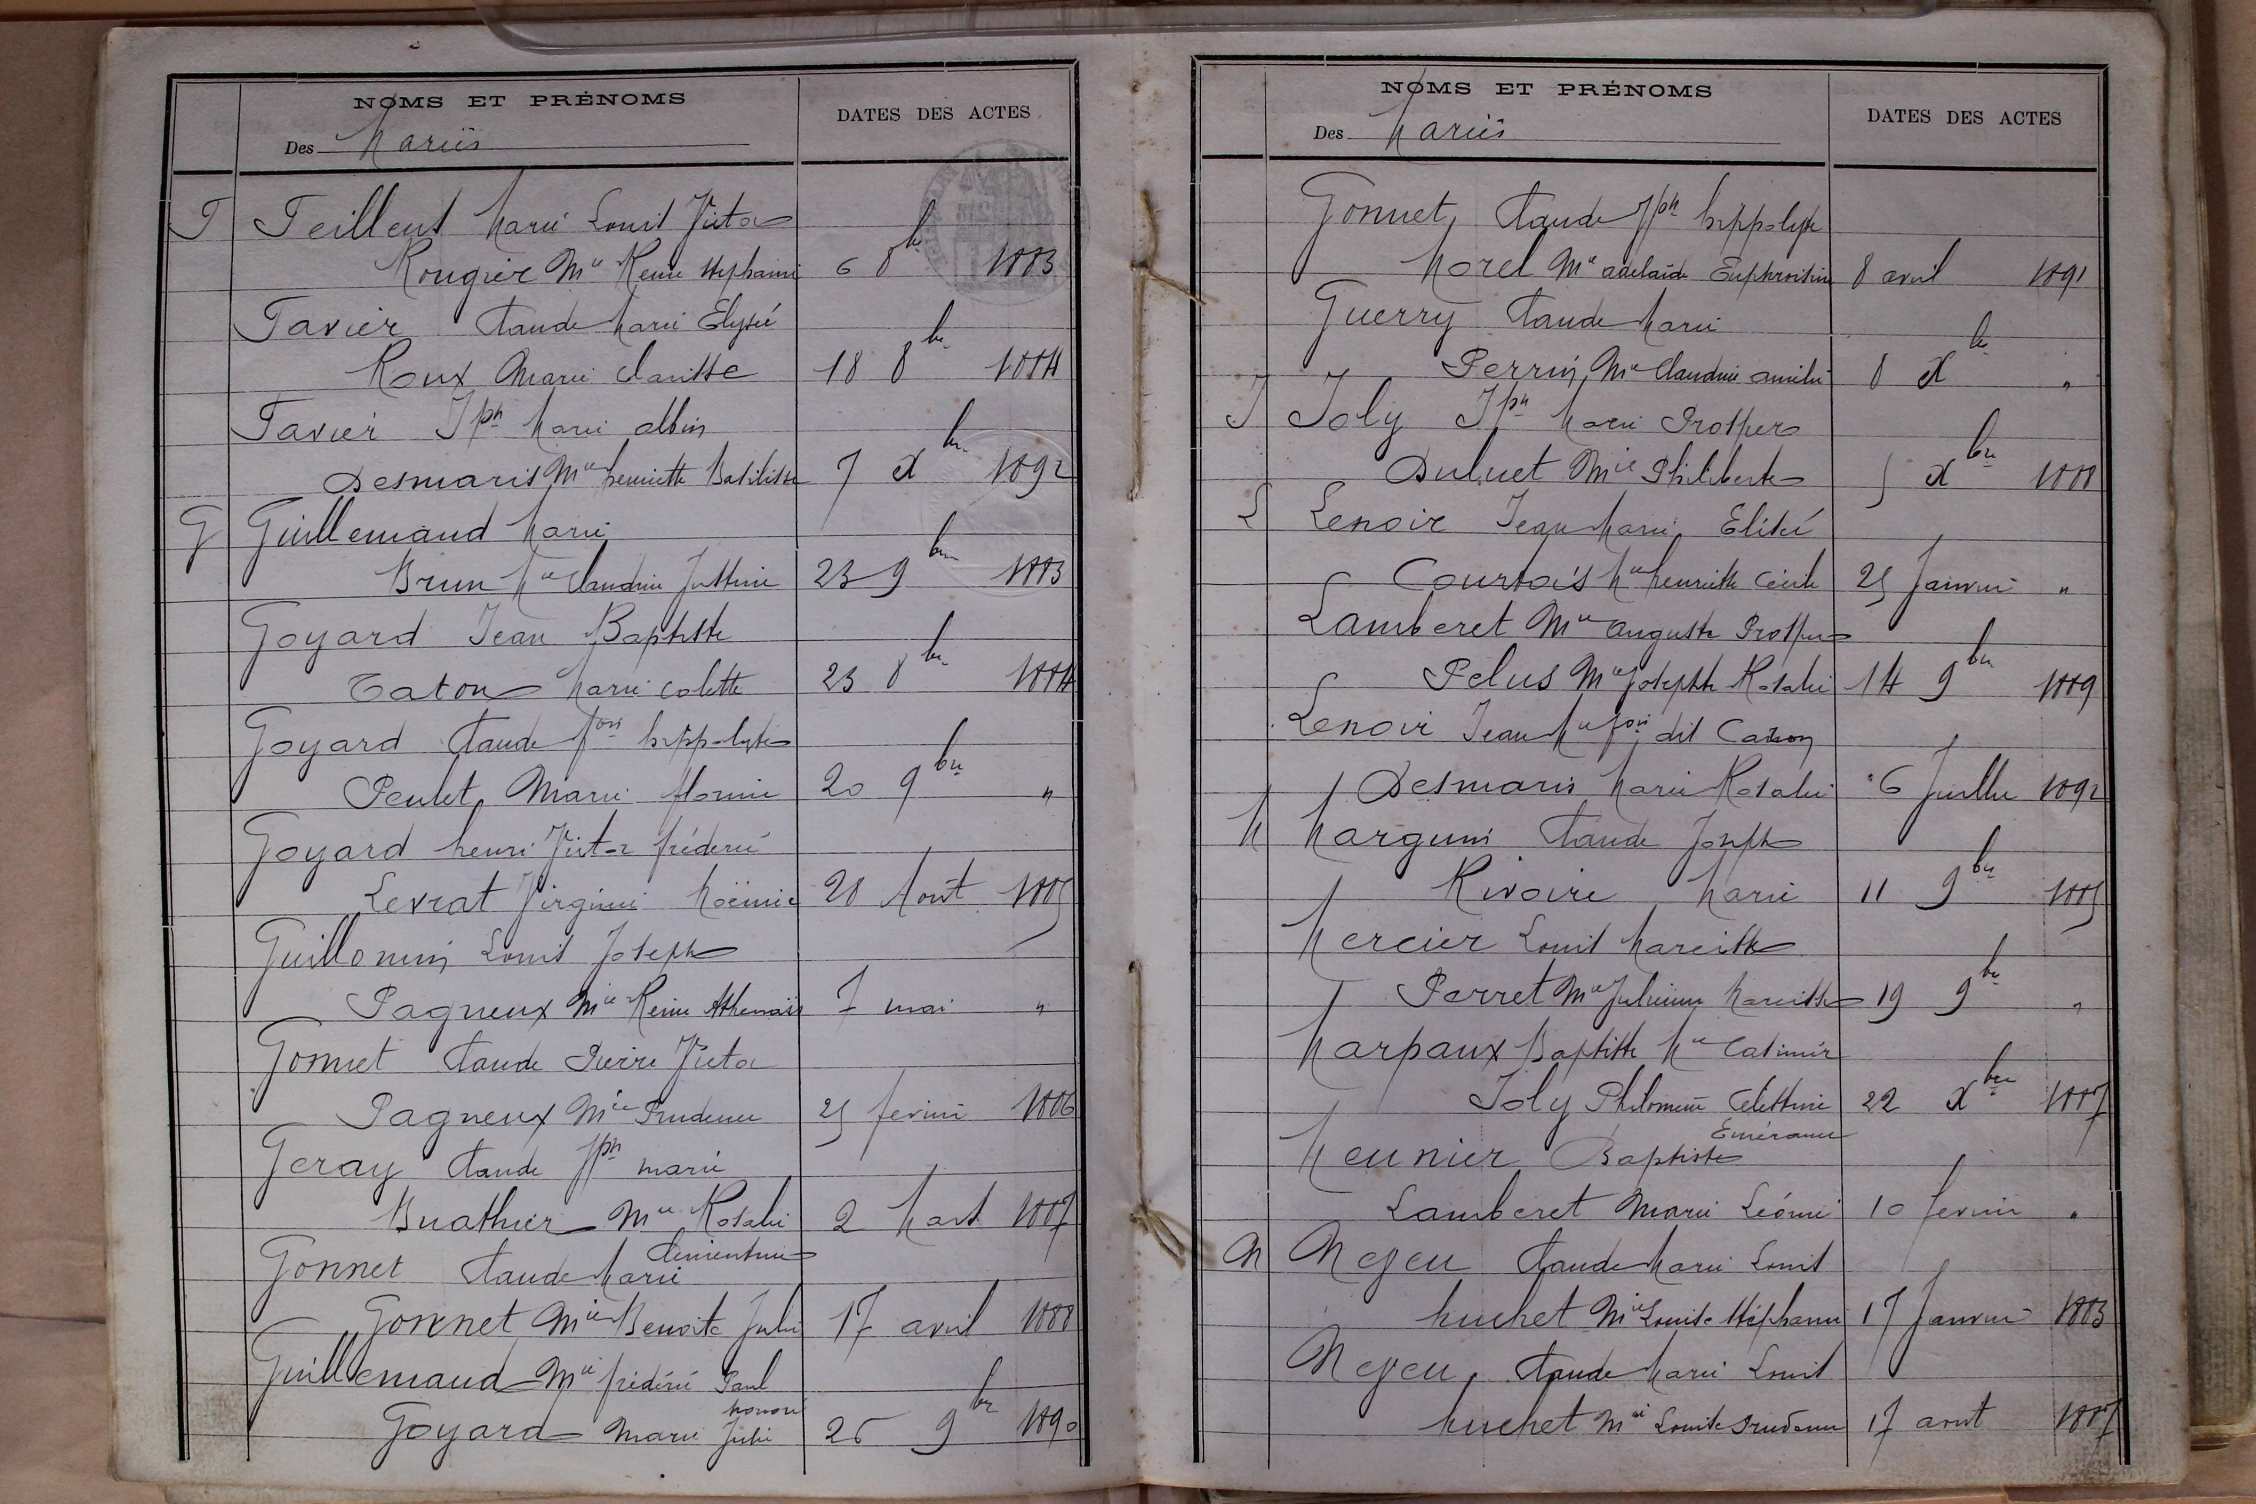 NOMS ET PRÉNOMS
DATES DES ACTES
Des Mariés
F Feillent Marie Louis Victor
Rougier Mie Reine Stéphanie 6 8bre 1883
Favier Claude Marie Elysée
Roux Marie Clarisse 18 8bre 1884
Favier Jph Marie Albin
Desmaris Mie henriette Basilisse 7 Xbre 1892
G Guillemaud Marie
Brun Mie Claudine Justine 23 9bre 1883
Goyard Jean Baptiste
Taton Marie Colette 23 8bre 1884
Goyard Claude fois hippolyte
Peulet Marie florine 20 9bre "
Goyard henri Victor fréderic
Levrat Virginie Noëmie 28 Août 1885
Guillomin Louis Joseph
Pagneux Mie Reine Athenaïs 7 mai "
Gonnet Claude Pierre Victor
Pagneux Mie Prudence 25 fevrier 1886
Geray Claude Jph marie
Buathier Mie Rosalie 2 Mars 1887
Clementine
Gonnet Claude Marie
Gonnet Mie Benoite Julie 17 avril 1888
Guillemaud Mie frédéric Paul
honorine
Goyard Marie Julie 26 9bre 1890
NOMS ET PRÉNOMS
DATES DES ACTES
Des Mariés
Gonnet, Claude Jph hippolyte
Morel Mie adelaïde Euphroisine 8 avril 1891
Guerry Claude Marie
Perrin, Mie Claudine amélie 8 Xbre "
J Joly Jph Marie Prosper
Duluet Mie Philiberte 5 Xbre 1888
L Lenoir Jean Marie Elisée
Courtois Mie henriette Cécile 25 Janvier "
Lamberet Mie auguste Prosper
Pelus Mie Josephte Rosalie 14 9bre 1889
Lenoir Jean Mie fois dit Caron
Desmaris Marie Rosalie 6 Juillet 1892
M Marguin Claude Joseph
Rivoire Marie 11 9bre 1885
Mercier Louis Narcisse
Perret Mie Julienne Narcisse 19 9bre "
Marpaux Baptiste Mie Casimir
Joly Philomène Celestine 22 Xbre 1887
Emérance
Meunier Baptiste
Lamberet Marie Léonie 10 fevrier "
N Neyeu Claude Marie Louis
huchet Mie Louise Stéphanie 17 Janvier 1883
Neyeu, Claude Marie Louis
huchet Mie Louise Prudence 17 aout 1887